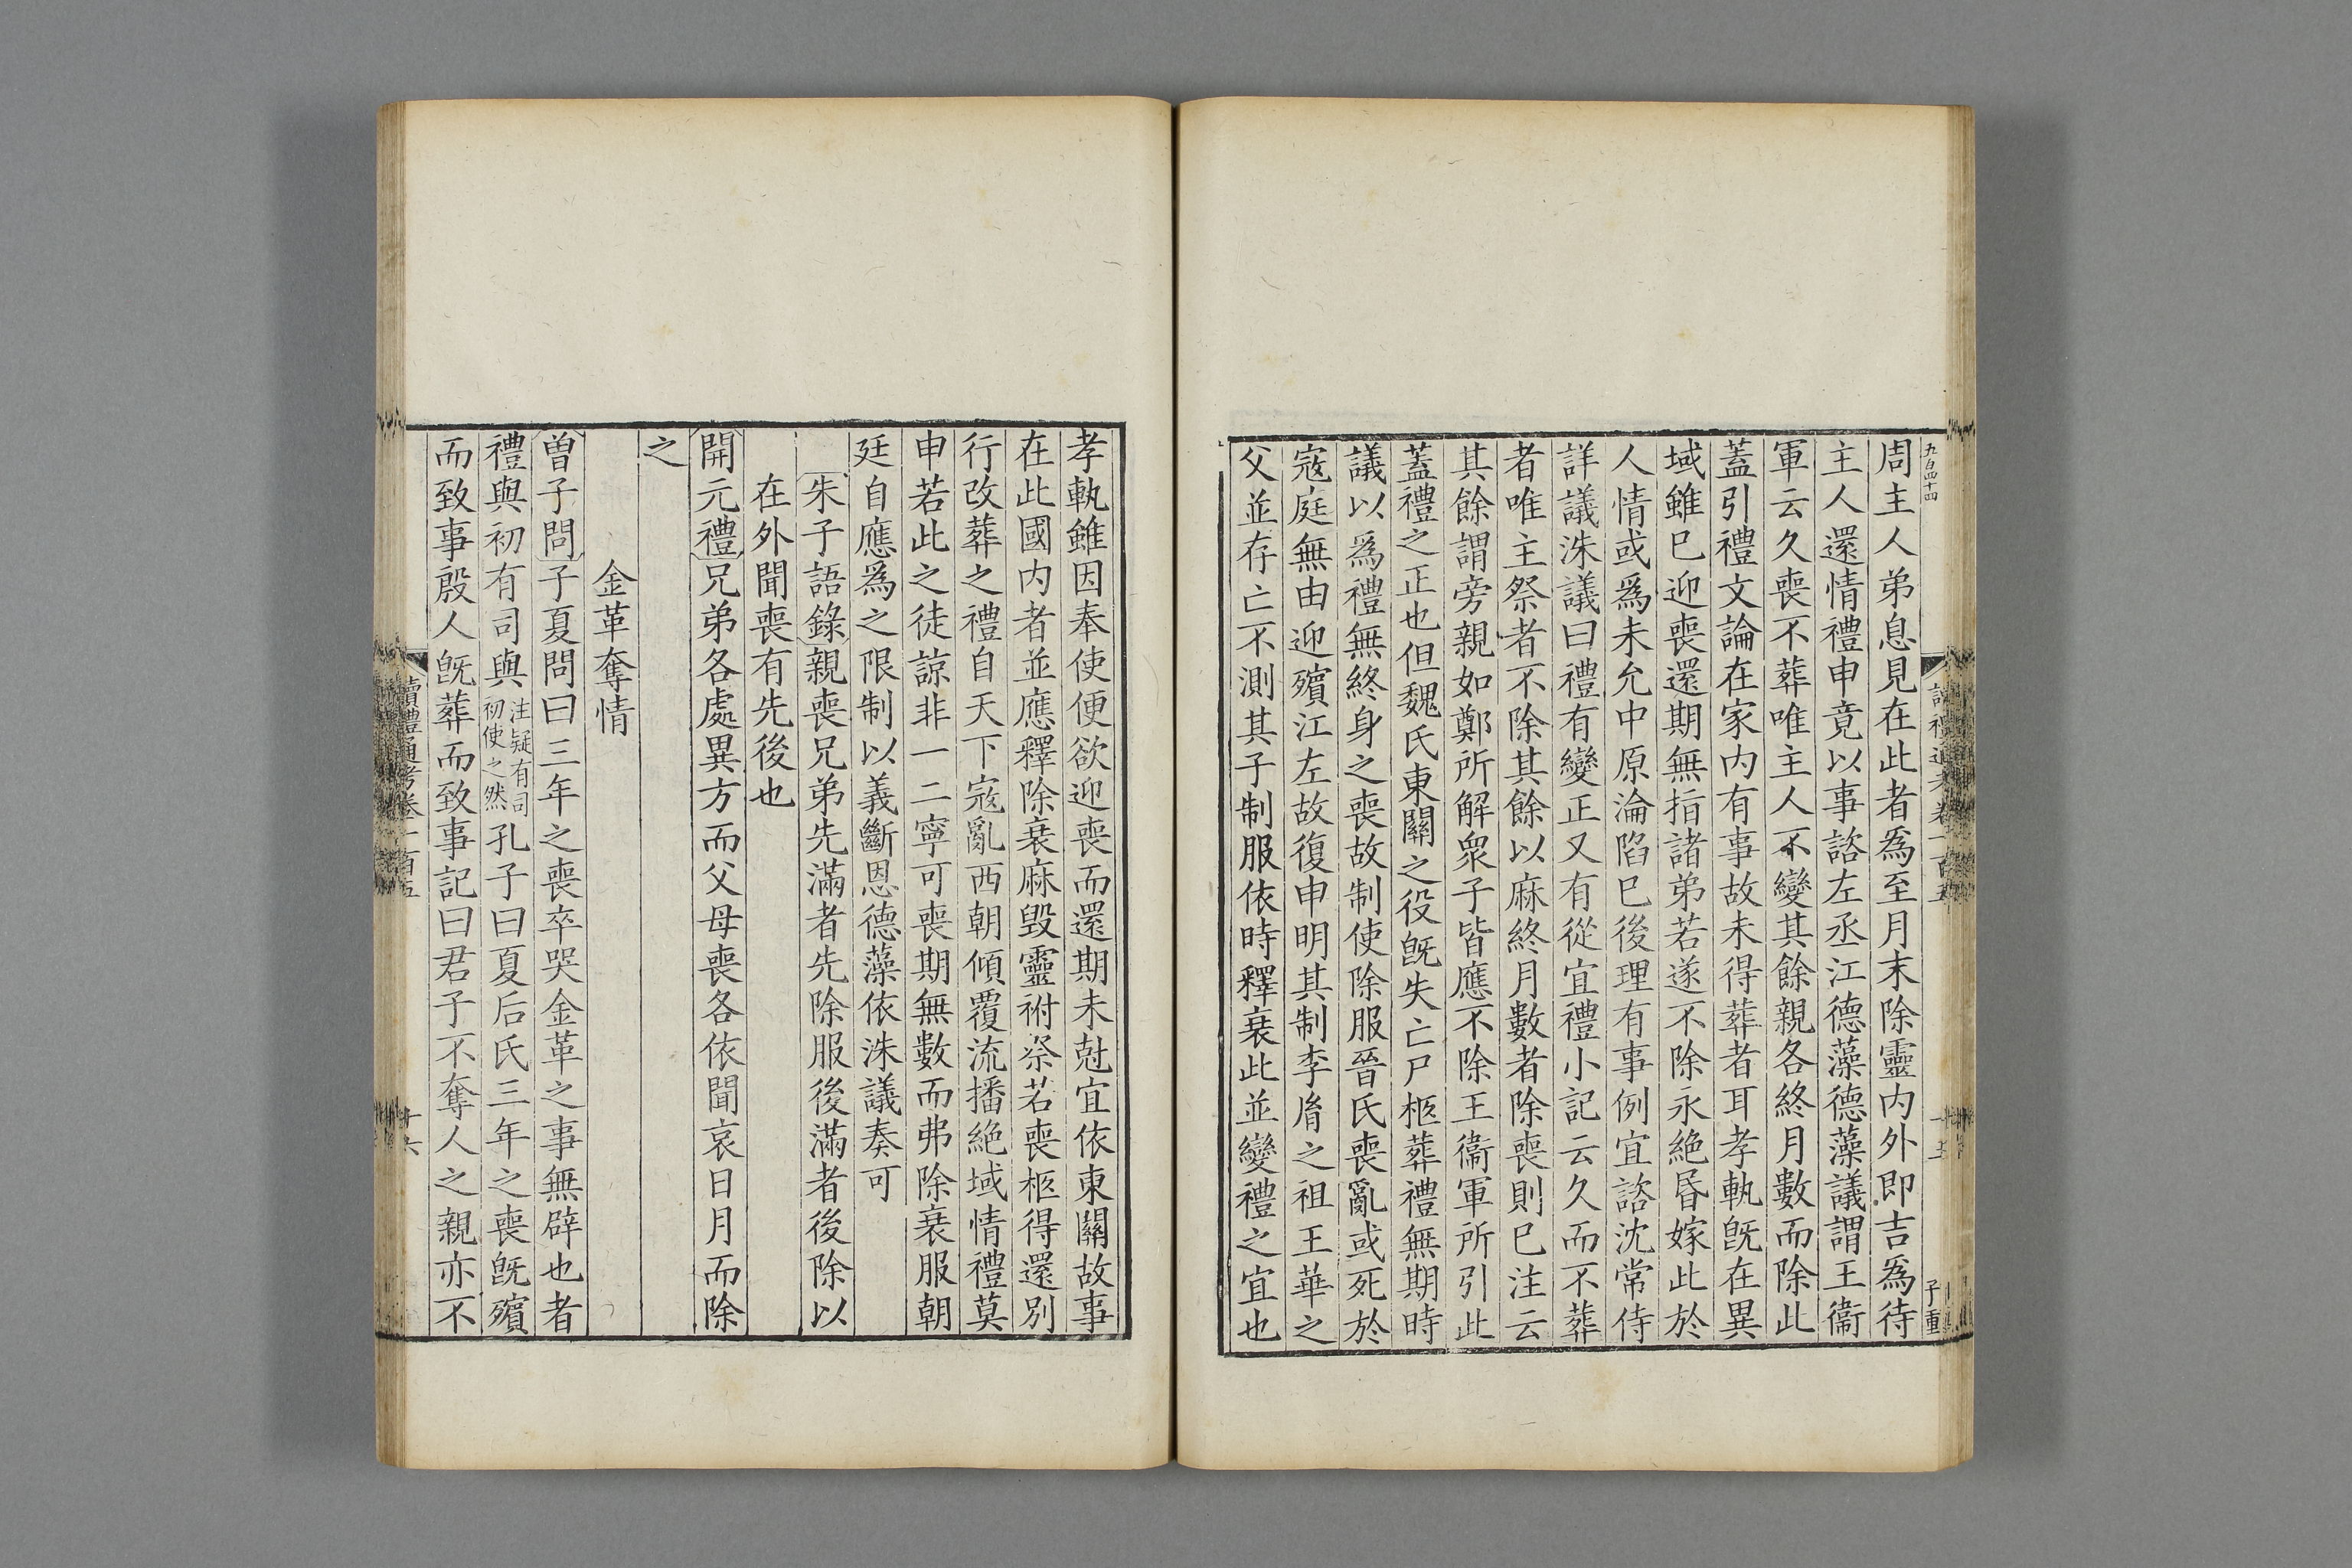 五百四十四
讀禮通考卷一百五
十五
子重
周主人弟息見在此者爲至月末除靈内外即吉爲待
主人還情禮申竟以事諮左丞江德藻德藻議謂王衞
軍云久喪不葬唯主人不變其餘親各終月數而除此
蓋引禮文論在家内有事故未得葬者耳孝軌旣在異
域雖已迎喪還期無指諸弟若遂不除永絶昏嫁此於
人情或爲未允中原淪陷已後理有事例宜諮沈常侍
詳議洙議曰禮有變正又有從宜禮小記云久而不葬
者唯主祭者不除其餘以麻終月數者除喪則已注云
其餘謂旁親如鄭所解衆子皆應不除王衞軍所引此
蓋禮之正也但魏氏東關之役旣失亡尸柩葬禮無期時
議以爲禮無終身之喪故制使除服晉氏喪亂或死於
寇庭無由迎殯江左故復申明其制李胤之祖王華之
父並存亡不測其子制服依時釋衰此並變禮之宜也
孝軌雖因奉使便欲迎喪而還期未尅宜依東關故事
在此國内者並應釋除衰麻毀靈祔祭若喪柩得還別
行改葬之禮自天下寇亂西朝傾覆流播絶域情禮莫
申若此之徒諒非一二寧可喪期無數而弗除衰服朝
廷自應爲之限制以義斷恩德藻依洙議奏可
朱子語錄親喪兄弟先滿者先除服後滿者後除以
在外聞喪有先後也
開元禮兄弟各處異方而父母喪各依聞哀日月而除
之
金革奪情
曽子問子夏問曰三年之喪卒哭金革之事無辟也者
禮與初有司與注疑有司初使之然孔子曰夏后氏三年之喪旣殯
而致事殷人旣葬而致事記曰君子不奪人之親亦不
讀禮通考卷一百五
十六